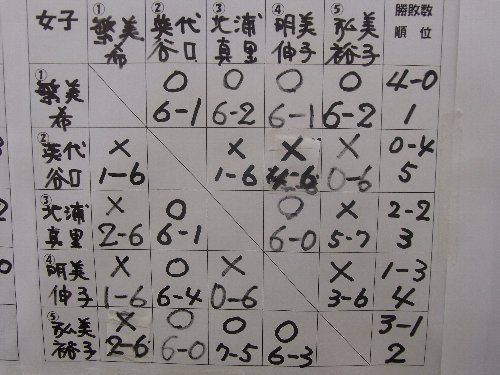 女子 ①繁美 ②英代 ③北浦 ④明美 ⑤弘美 勝敗数
希 谷口 真里 伸子 裕子 順位
①繁美 ○ ○ ○ ○ 4-0
希 6-1 6-2 6-1 6-2 1
②英代 × × × × 0-4
谷口 1-6 1-6 4-6 0-6 5
③北浦 × ○ ○ × 2-2
真里 2-6 6-1 6-0 5-7 3
④明美 × ○ × × 1-3
伸子 1-6 6-4 0-6 3-6 4
⑤弘美 × ○ ○ ○ 3-1
裕子 2-6 6-0 7-5 6-3 2